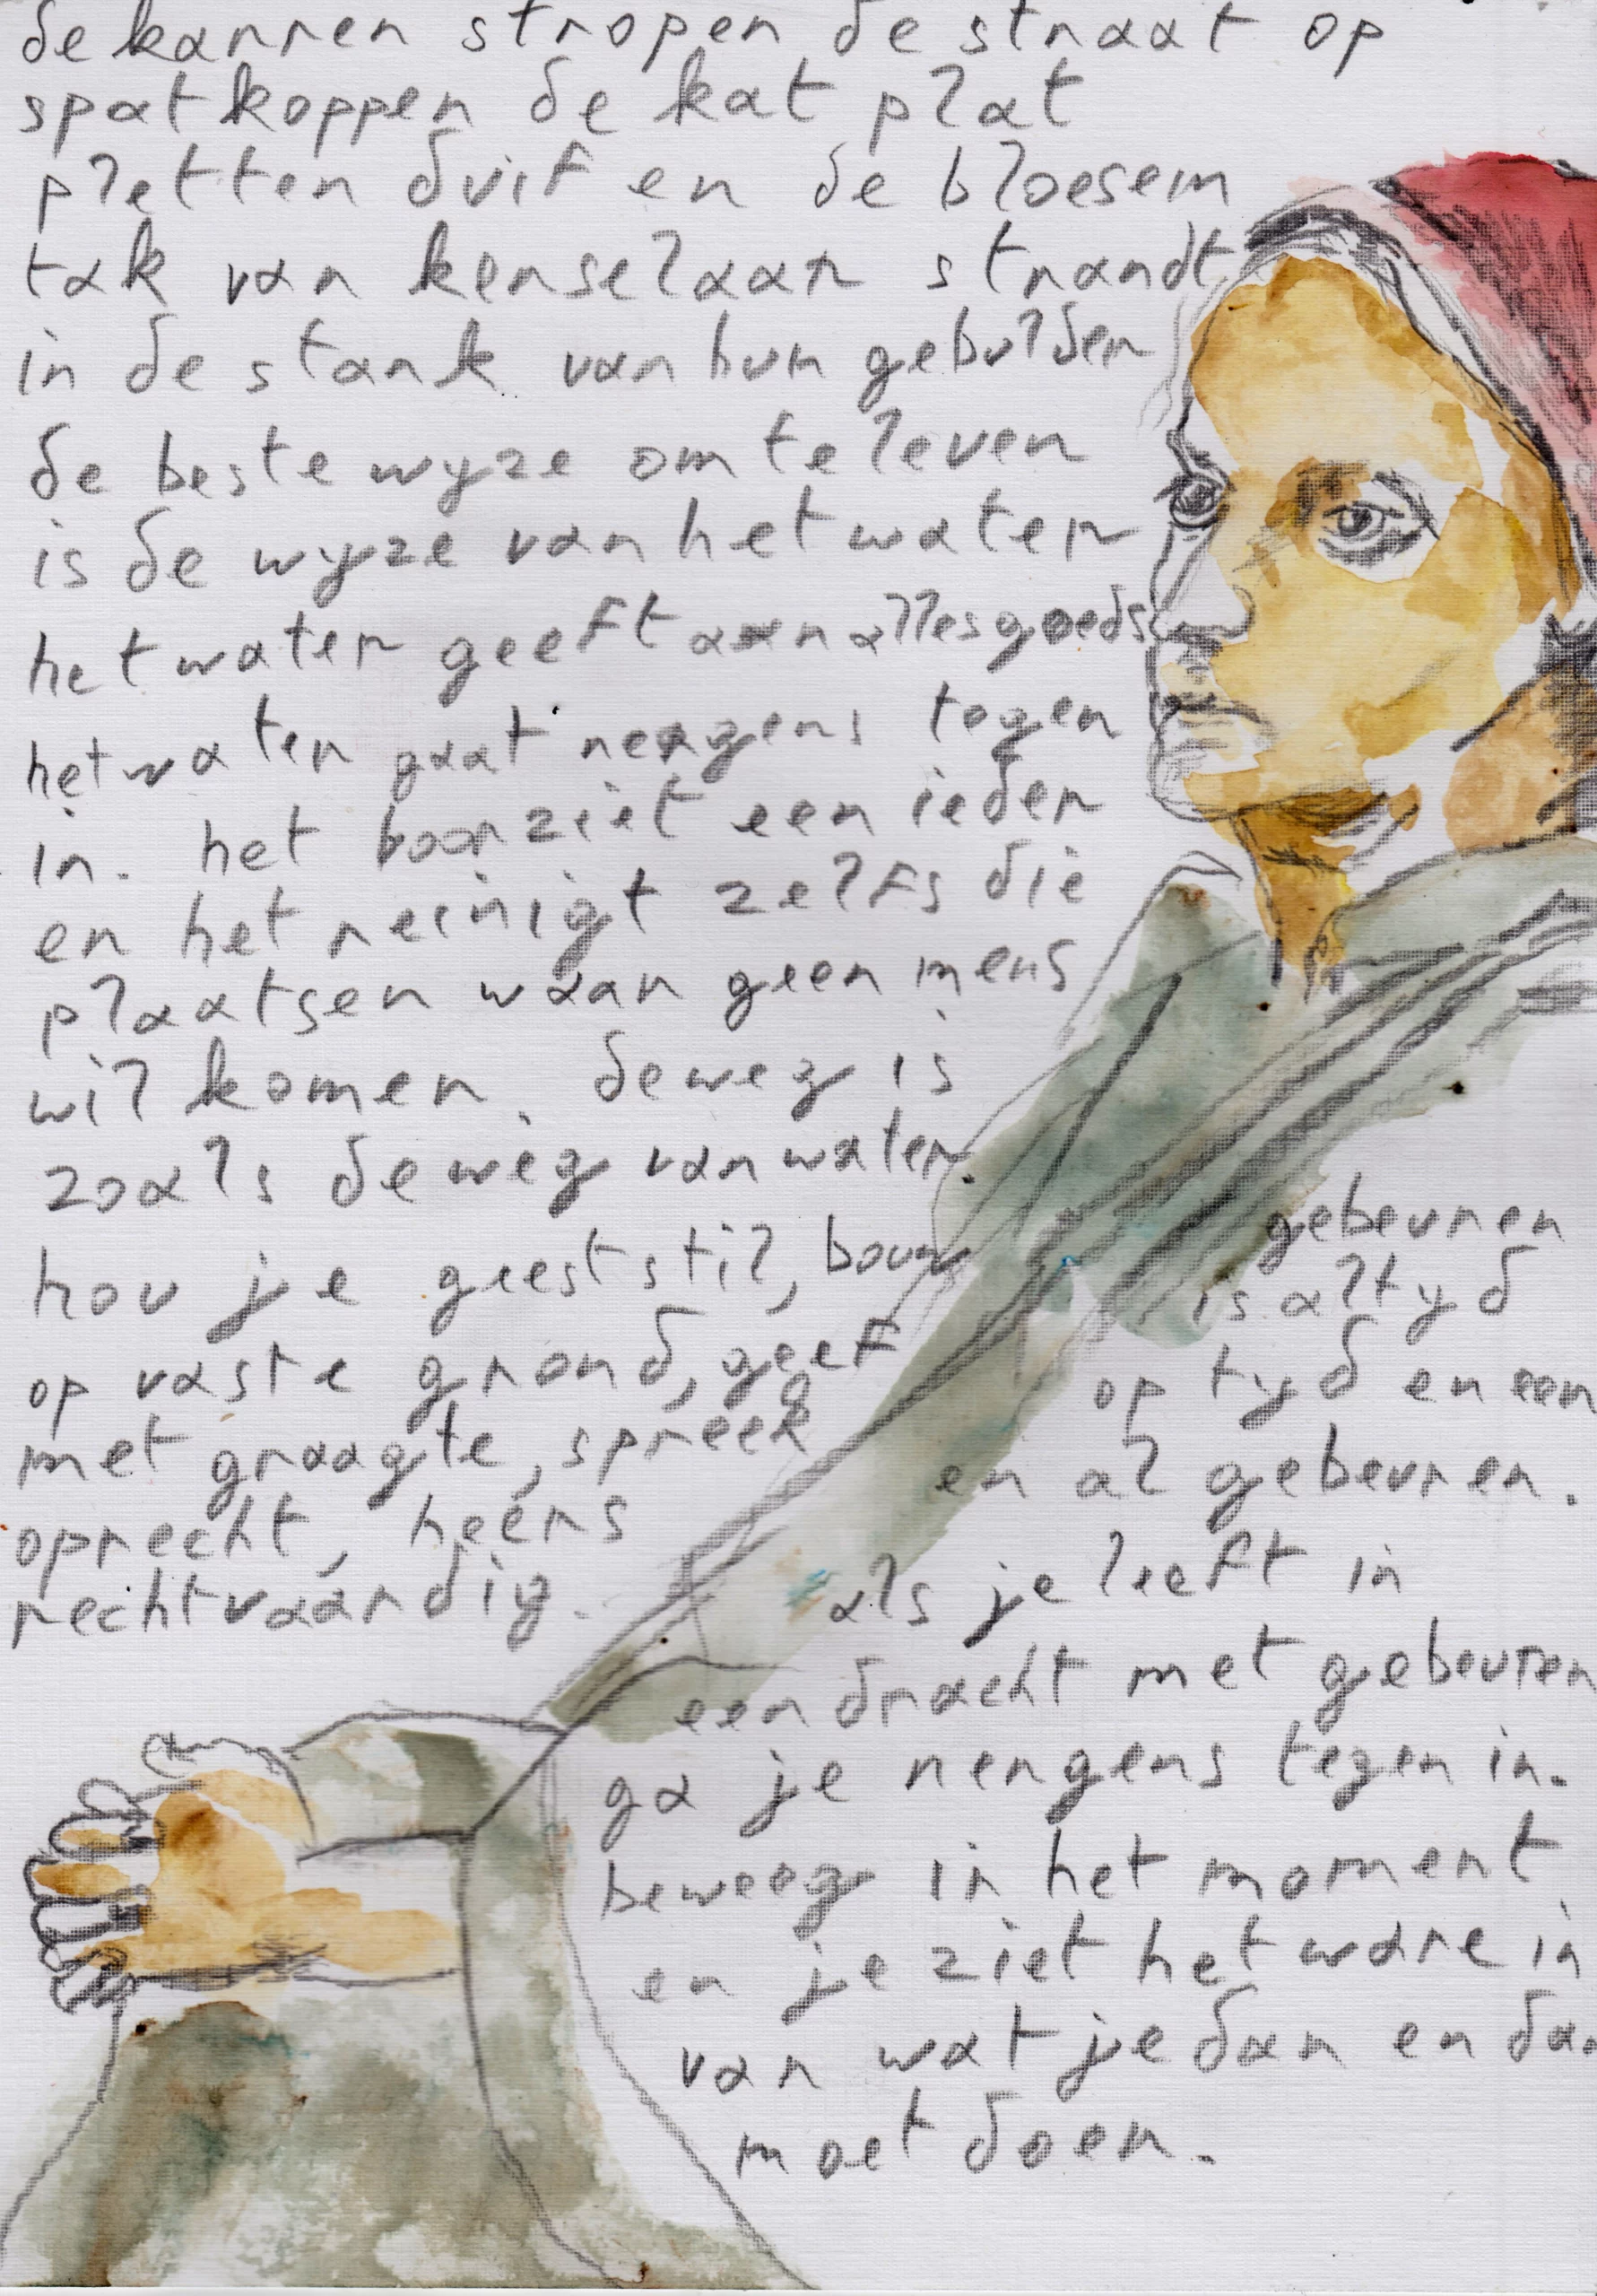 de karren stropen de straat op
spatkoppen de kat plat
pletten duif en de bloesem
tak van kerselaar strandt
in de stank van hun gebulder
de beste wyze om te leven
is de wyze van het water
het water geeft aan alles goeds
het water gaat nergens tegen
in. het voorziet een ieder
en het reinigt zelfs die
plaatsen waar geen mens
wil komen. de weg is
zoals de weg van water.
hou je geest stil, bouw
op vaste grond, geef
met graagte, spreek
oprecht, heers
rechtvaardig.
gebeuren
is altyd
op tyd en een
en al gebeuren.
als je leeft in
eendracht met gebeuren
ga je nergens tegen in.
beweeg in het moment
en je ziet het ware in
van wat je dan en dan
moet doen.